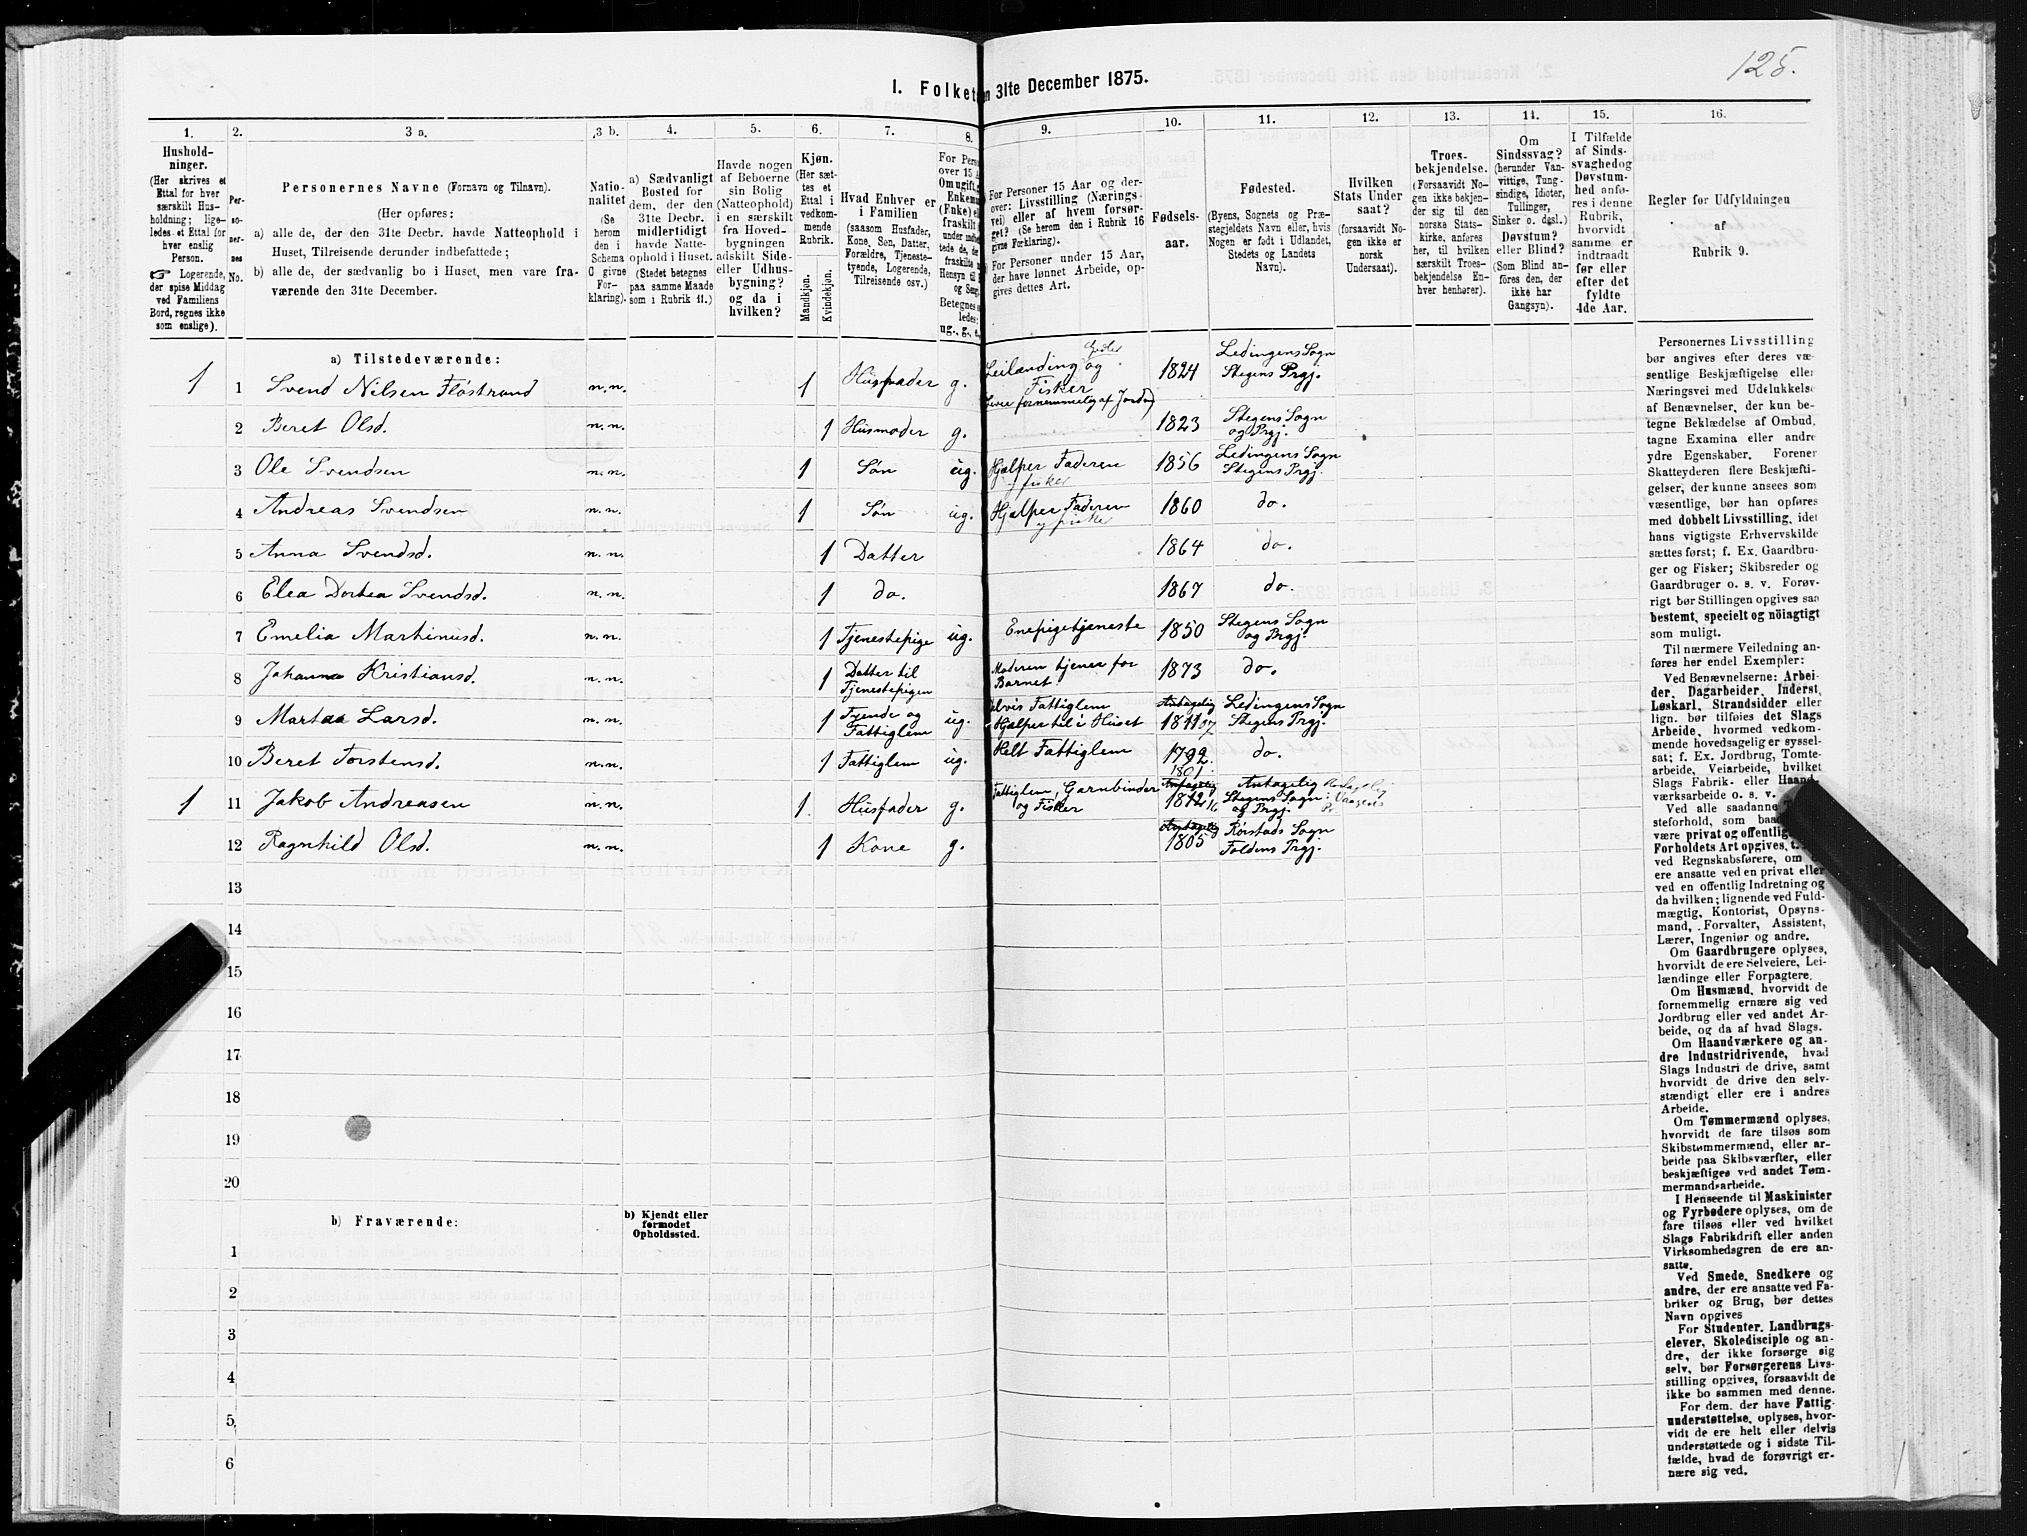 125.
I. Folket
n 31te December 1875.
1. 2. 3 a. 3 b. 4. 5. 6. 7. 8. 9. 10. 11. 12. 13. 14. 15. 16.
Hushold-
ninger.
(Her skrives et
Ettal for hver
særskilt Hus-
holdning; lige-
ledes et Ettal for
hver enslig
Person.
☞ Logerende,
der spise Middag
ved Familiens
Bord, regnes ikke
som enslige).
Per-
so-
ner-
nes
No.
Personernes Navne (Fornavn og Tilnavn).
(Her opføres:
a) alle de, der den 31te Decbr. havde Natteophold i
Huset, Tilreisende derunder indbefattede;
b) alle de, der sædvanlig bo i Huset, men vare fra-
værende den 31te December.
Natio-
nalitet
(Se
herom
den i
Schema
C givne
For-
klaring).
a) Sædvanligt
Bosted for
dem, der den
31te Decbr.
midlertidigt
havde Natte-
ophold i Huset.
(Stedet betegnes
paa samme Maade
som i Rubrik 11.)
Havde nogen
af Beboerne
sin Bolig
(Natteophold)
i en særskilt
fra Hoved-
bygningen
adskilt Side-
eller Udhus-
bygning?
og da i
hvilken?
Kjøn.
(Her sæt-
tes et
Ettal i
vedkom-
mende
Rubrik.
Mandkjøn.
Kvindekjøn.
Hvad Enhver er
i Familien
(saasom Husfader,
Kone, Søn, Datter,
Forældre, Tjeneste-
tyende, Logerende,
Tilreisende osv.)
For Pers
over 15 A
Om ugift, g
Enkema
(Enke) el
fraskilt
under indb
tede de, de
fraskilte
Hensyn til
og Seng.
Betegnes s
ledes:
ug., g., e.
For Personer 15 Aar og der-
over: Livsstilling (Nærings-
vei) eller af hvem forsør-
get? (Se herom den i Rubrik 16
givne Forklaring).
For Personer under 15 Aar,
der have lønnet Arbeide, op-
gives dettes Art.
Fødsels-
aar.
Fødested.
(Byens, Sognets og Præ-
stegjeldets Navn eller, hvis
Nogen er født i Udlandet,
Stedets og Landets
Navn).
Hvilken
Stats Under
saat?
(forsaavidt No-
gen ikke er
norsk
Undersaat).
Troes-
bekjendelse.
(Forsaavidt No-
gen ikke bekjen-
der sig til den
norske Stats-
kirke, anføres
her, til hvilken
særskilt Troes-
bekjendelse En-
hver henhører).
Om
Sindssvag?
(herunder Van-
vittige, Tung-
sindige, Idioter,
Tullinger,
Sinker o. desl.)
Døvstum?
eller Blind?
(Som Blind an-
føres den, der
ikke har
Gangsyn).
I Tilfælde
af Sinds-
svaghedog
Døvstum-
hed anfø-
res i denne
Rubrik,
hvorvidt
samme er
indtraadt
før eller
efter det
fyldte
4de Aar.
Regler for Udfyldningen
af
Rubrik 9.
a) Tilstedeværende:
1 1 Svend Nilsen Flostrand n.n. 1 Husfader g. Leilænding og Fisker 1824 Ledingens Sogn Stegens Prgj.
2 Beret Olsd. n.n. 1 Husmoder g. 1823 Stegens Sogn og Prgj.
3 Ole Svendsen n.n. 1 Søn ug. Hjælper Faderen og fisker 1856 Ledingens Sogn Stegens Prgj.
4 Andreas Svendsen n.n. 1 Søn ug. Hjælper Faderen og fisker 1860 do.
5 Anna Svendsd. n.n. 1 Datter 1864 do.
6 Elea Dortea Svendsd. n.n. 1 do. 1867 do.
7 Emelia Martinusd. n.n. 1 Tjenestepige ug. Enepigetjeneste 1850 Stegens Sogn og Prgj.
8 Johanna Kristiansd. n.n. 1 Datter til Tjenestepigen Moderen tjener for Barnet 1873 do.
9 Martaa Larsd. n.n. 1 Tyende og Fattiglem ug. Delvis Fattiglem Hjælper til i Huset Antagelig 1811 Ledingens Sogn Stegens Prgj.
10 Beret Torstensd. n.n. 1 Fattiglem ug. Helt Fattiglem 1792 1801 do.
1 11 Jakob Andreasen n.n. 1. Husfader g. Fattiglem, Garnbinder og Fisker Antagelig 1812 16 Antagelig Stegens Sogn og Prgj Antagelig Vaagens Pr.
12 Ragnhild Olsd. n.n. 1 Kone g. Antagelig 1805 Rørstads Sogn Foldens Prgj.
13
14
15
16
17
18
19
20
b) Fraværende:
b) Kjendt eller
formodet
Opholdssted.
1
2
3
4
5
6
Personernes Livsstilling
bør angives efter deres væ-
sentlige Beskjæftigelse eller
Næringsvei med Udelukkelse
af Benævnelser, der kun be-
tegne Beklædelse af Ombud,
tagne Examina eller andre
ydre Egenskaber. Forener
Skatteyderen flere Beskjæfti-
gelser, der kunne ansees som
væsentlige, bør han opføres
med dobbelt Livsstilling, idet
hans vigtigste Erhvervskilde
sættes først; f. Ex. Gaardbru-
ger og Fisker; Skibsreder og
Gaardbruger o. s. v. Forøv-
rigt bør Stillingen opgives saa
bestemt, specielt og nöiagtigt
som muligt.
Til nærmere Veiledning an-
føres her endel Exempler:
Ved Benævnelserne: Arbei-
der, Dagarbeider, Inderst,
Løskarl, Strandsidder eller
lign. bør tilføies det Slags
Arbeide, hvormed vedkom-
mende hovedsagelig er syssel-
sat; f. Ex. Jordbrug, Tomte-
arbeide, Veiarbeide, hvilket
Slags Fabrik- eller Haand-
værksarbeide o. s. v.
Ved alle saadanne
steforhold, som baa
være privat og offentlig
Forholdets Art opgives, t.
ved Regnskabsførere, om
ere ansatte ved en privat eller
ved en offentlig Indretning og
da hvilken; lignende ved Fuld-
mægtig, Kontorist, Opsyns-
mand, Forvalter, Assistent,
Lærer, Ingeniør og andre.
Om Gaardbrugere oplyses,
hvorvidt de ere Selveiere, Lei-
lændinge eller Forpagtere.
Om Husmænd, hvorvidt de
fornemmelig ernære sig ved
Jordbrug eller ved andet Ar-
beide, og da af hvad Slags.
Om Haandværkere og an-
dre Industridrivende, hvad
Slags Industri de drive, samt
hvorvidt de drive den selv-
stændigt eller ere i andres
Arbeide.
Om Tømmermænd oplyses,
hvorvidt de fare tilsøs som
Skibstømmermænd, eller ar-
beide paa Skibsværfter, eller
beskjæftiges ved andet Tøm-
mermandsarbeide.
I Henseende til Maskinister
og Fyrbødere oplyses, om de
fare tilsøs eller ved hvilket
Slags Fabrikdrift eller anden
Virksomhedsgren de ere an-
satte.
Ved Smede, Snedkere og
andre, der ere ansatte ved Fa-
briker og Brug, bør dettes
Navn opgives
For Studenter, Landbrugs-
elever, Skoledisciple og an-
dre, der ikke forsørge sig
selv, bør Forsørgerens Livs-
stilling opgives, forsaavidt de
ikke bo sammen med denne.
For dem, der have Fattig-
understøttelse, oplyses, hvor-
vidt de ere helt eller delvis
understøttede og i sidste Til-
fælde, hvad de forøvrigt er-
nære sig ved.